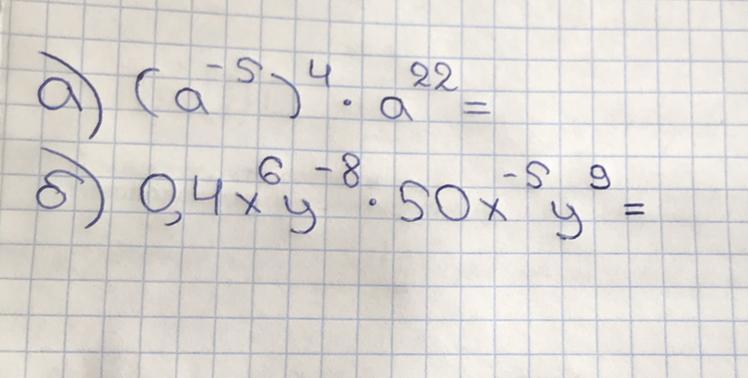 а) (a⁻⁵)⁴ · a²² =
б) 0,4x⁶y⁻⁸ · 50x⁻⁵y⁹ =